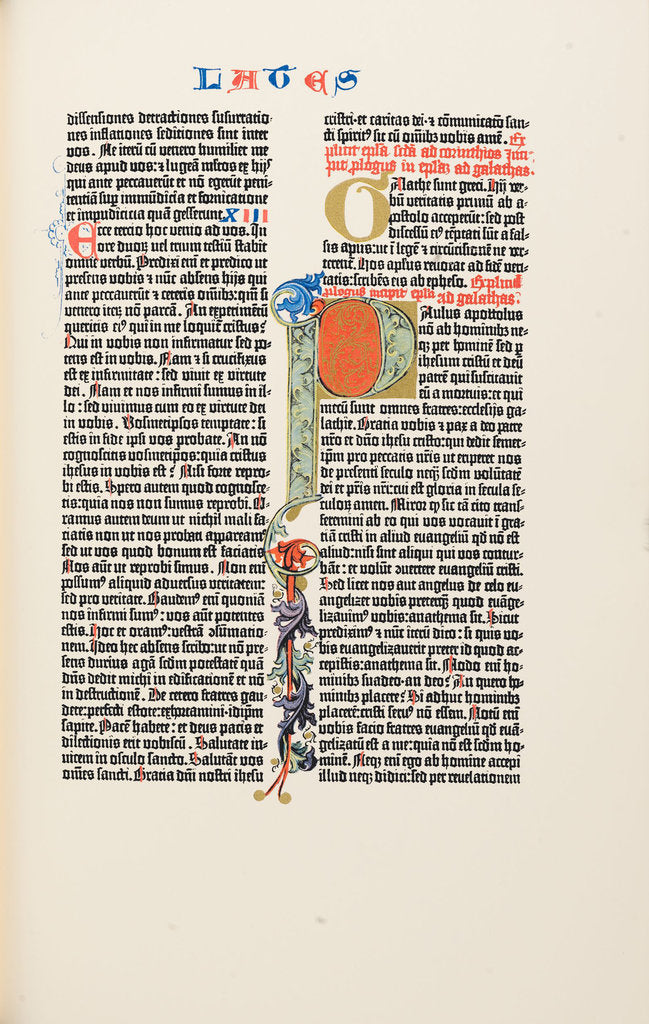 LATES
dissensiones detractiones susurratio-
nes inflationes seditiones sint inter
vos. Ne iterū cū venero humiliet me
deus apud vos: ⁊ lugeā ml̄tos ex hijs
qui ante peccaverūt et nō egerūt peni-
tentiā sup immūdicia et fornicatione
et impudicicia quā gesserunt. XIII
Ecce tercio hoc venio ad vos. In
ore duorū vel trium testiū stabit
omne verbū. Predixi eni et predico ut
presens vobis ⁊ nūc absens hijs qui
ante peccaverūt ⁊ ceteris omībz: qm̄ si
venero iterū nō parcā. An experimētū
queritis ei⁹ qui in me loquit̄ cristus?
Qui in vobis non infirmatur sed po-
tens est in vobis. Nam ⁊ si crucifixus
est ex infirmitate: sed vivit ex virtute
dei. Nam et nos infirmi sumus in il-
lo: sed vivimus cum eo ex virtute dei
in vobis. Vosmetipsos temptate: si
estis in fide ipsi vos probate. An nō
cognoscitis vosmetipos: quia cristus
ihesus in vobis est? Nisi forte repro-
bi estis. Spero autem quod cognosce-
tis: quia nos non sumus reprobi. O-
ramus autem deum ut nichil mali fa-
ciatis non ut nos probati appareamꝰ
sed ut vos quod bonum est faciatis
Nos aūt ut reprobi simus. Non eni
possumꝰ aliquid adversus veritatem:
sed pro veritate. Gaudemꝰ eni quoniā
nos infirmi sumꝰ: vos aūt potentes
estis. Hoc et oramꝰ: vestrā ↄsūmatio-
nem. Ideo hec absens scribo: ut nō pre-
sens durius agā scdm̄ potestatē quā
dūs dedit michi in edificationē et nō
in destructionē. De cetero fratres gau-
dete: perfecti estote: exhortamini: idip̄m
sapite. Pacē habete: et deus pacis et
dilectionis erit vobiscū. Salutate in-
vicem in osculo sancto. Salutāt vos
om̄es sancti. Gratia dn̄i nostri ihesu
cristi: et caritas dei: ⁊ cōmunicatō san-
cti spirit⁹ sit cū omībz vobis amē. Ex-
plicit epl̄a scd̄a ad corinthios Inci-
pit ꝓlogus in epl̄az ad galathas.
Galathe sunt greci. Hij ver-
bū veritatis primū ab a-
postolo acceperūt: sed post
discessū eiꝰ tēptati sūt a fal-
sis apl̄is: ut ī legē ⁊ circūcisionē ne ver-
terent̄. Hos apl̄us revocat ad fidē veri-
tatis: scribēs eis ab epheso. Explicit
ꝓlogus incipit epl̄a ad galathas.
Paulus apostolus
nō ab hominibꝰ ne-
qꝫ per hominē sed p
ihesum cristū et deū
patrē qui suscitavit
eū a mortuis: et qui
mecū sunt omnes fratres: ecclesijs ga-
lathie. Gratia vobis ⁊ pax a deo patre
nr̄o et dn̄o ihesu cristo: qui dedit semet-
ip̄m pro peccatis nr̄is ut eriperet nos
de presenti seculo neqꝫ scdm̄ volūtatē
dei et pr̄is nr̄i: cui est gloria in secula se-
culorꝫ amen. Miror qꝫ sic tā cito trans-
feremini ab eo qui vos vocavit ī gra-
tiā cristi in aliud evangeliū: qd̄ nō est
aliud: nisi sunt aliqui qui vos contur-
bāt: et volūt ↄvertere evangeliū cristi.
Sed licet nos aut angelus de celo eu-
angelizet vobis preterqꝫ quod evāge-
lizavimꝰ vobis: anathema sit. Sicut
predixim⁹ ⁊ nūc iterū dico: si quis vo-
bis evangelizaverit preter id quod ac-
cepistis: anathema sit. Modo eni ho-
minibꝫ suadeo an deo? An quero ho-
minibꝫ placere? Si adhuc hominibꝫ
placerē: cristi servꝰ nō essem. Notū eni
vobis facio fratres evangeliū qd̄ eu-
angelizatū est a me: quia nō est scdm̄ ho-
minē. Neqꝫ eni ego ab homine accepi
illud neqꝫ didici: sed per revelationem